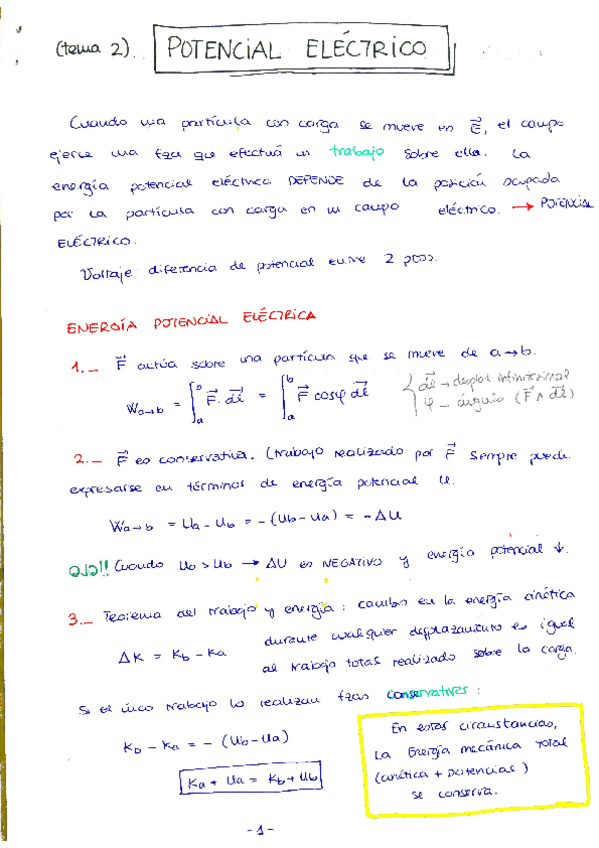 (tema 2) POTENCIAL ELÉCTRICO
Cuando una partícula con carga se mueve en E⃗, el campo
ejerce una fza que efectuá un trabajo sobre ella. La
energía potencial eléctrica DEPENDE de la posición ocupada
por la partícula con carga en un campo eléctrico. → POTENCIAL
ELÉCTRICO.
Voltaje: diferencia de potencial entre 2 ptos.
ENERGÍA POTENCIAL ELÉCTRICA
1._ F⃗ actúa sobre una partícula que se mueve de a→b.
Wa→b = ∫ₐᵇ F⃗·dl⃗ = ∫ₐᵇ F⃗ cosφ dl⃗ { dl⃗ → desplaz infinitesimal
φ → ángulo (F⃗ ∧ dl⃗)
2._ F⃗ es conservativa. (trabajo realizado por F⃗ siempre puede
expresarse en términos de energía potencial U.
Wa→b = Ua - Ub = -(Ub-Ua) = -ΔU
OJO!! Cuando Ua>Ub → ΔU es NEGATIVO y energía potencial ↓.
3._ Teorema del trabajo y energía: cambio en la energía cinética
ΔK = Kb - Ka durante cualquier desplazamiento es igual
al trabajo total realizado sobre la carga.
Si el único trabajo lo realizan fzas conservativas:
Kb - Ka = -(Ub-Ua)
Ka + Ua = Kb + Ub
En estas circunstancias,
la Energía mecánica total
(cinética + potencial)
se conserva.
-1-